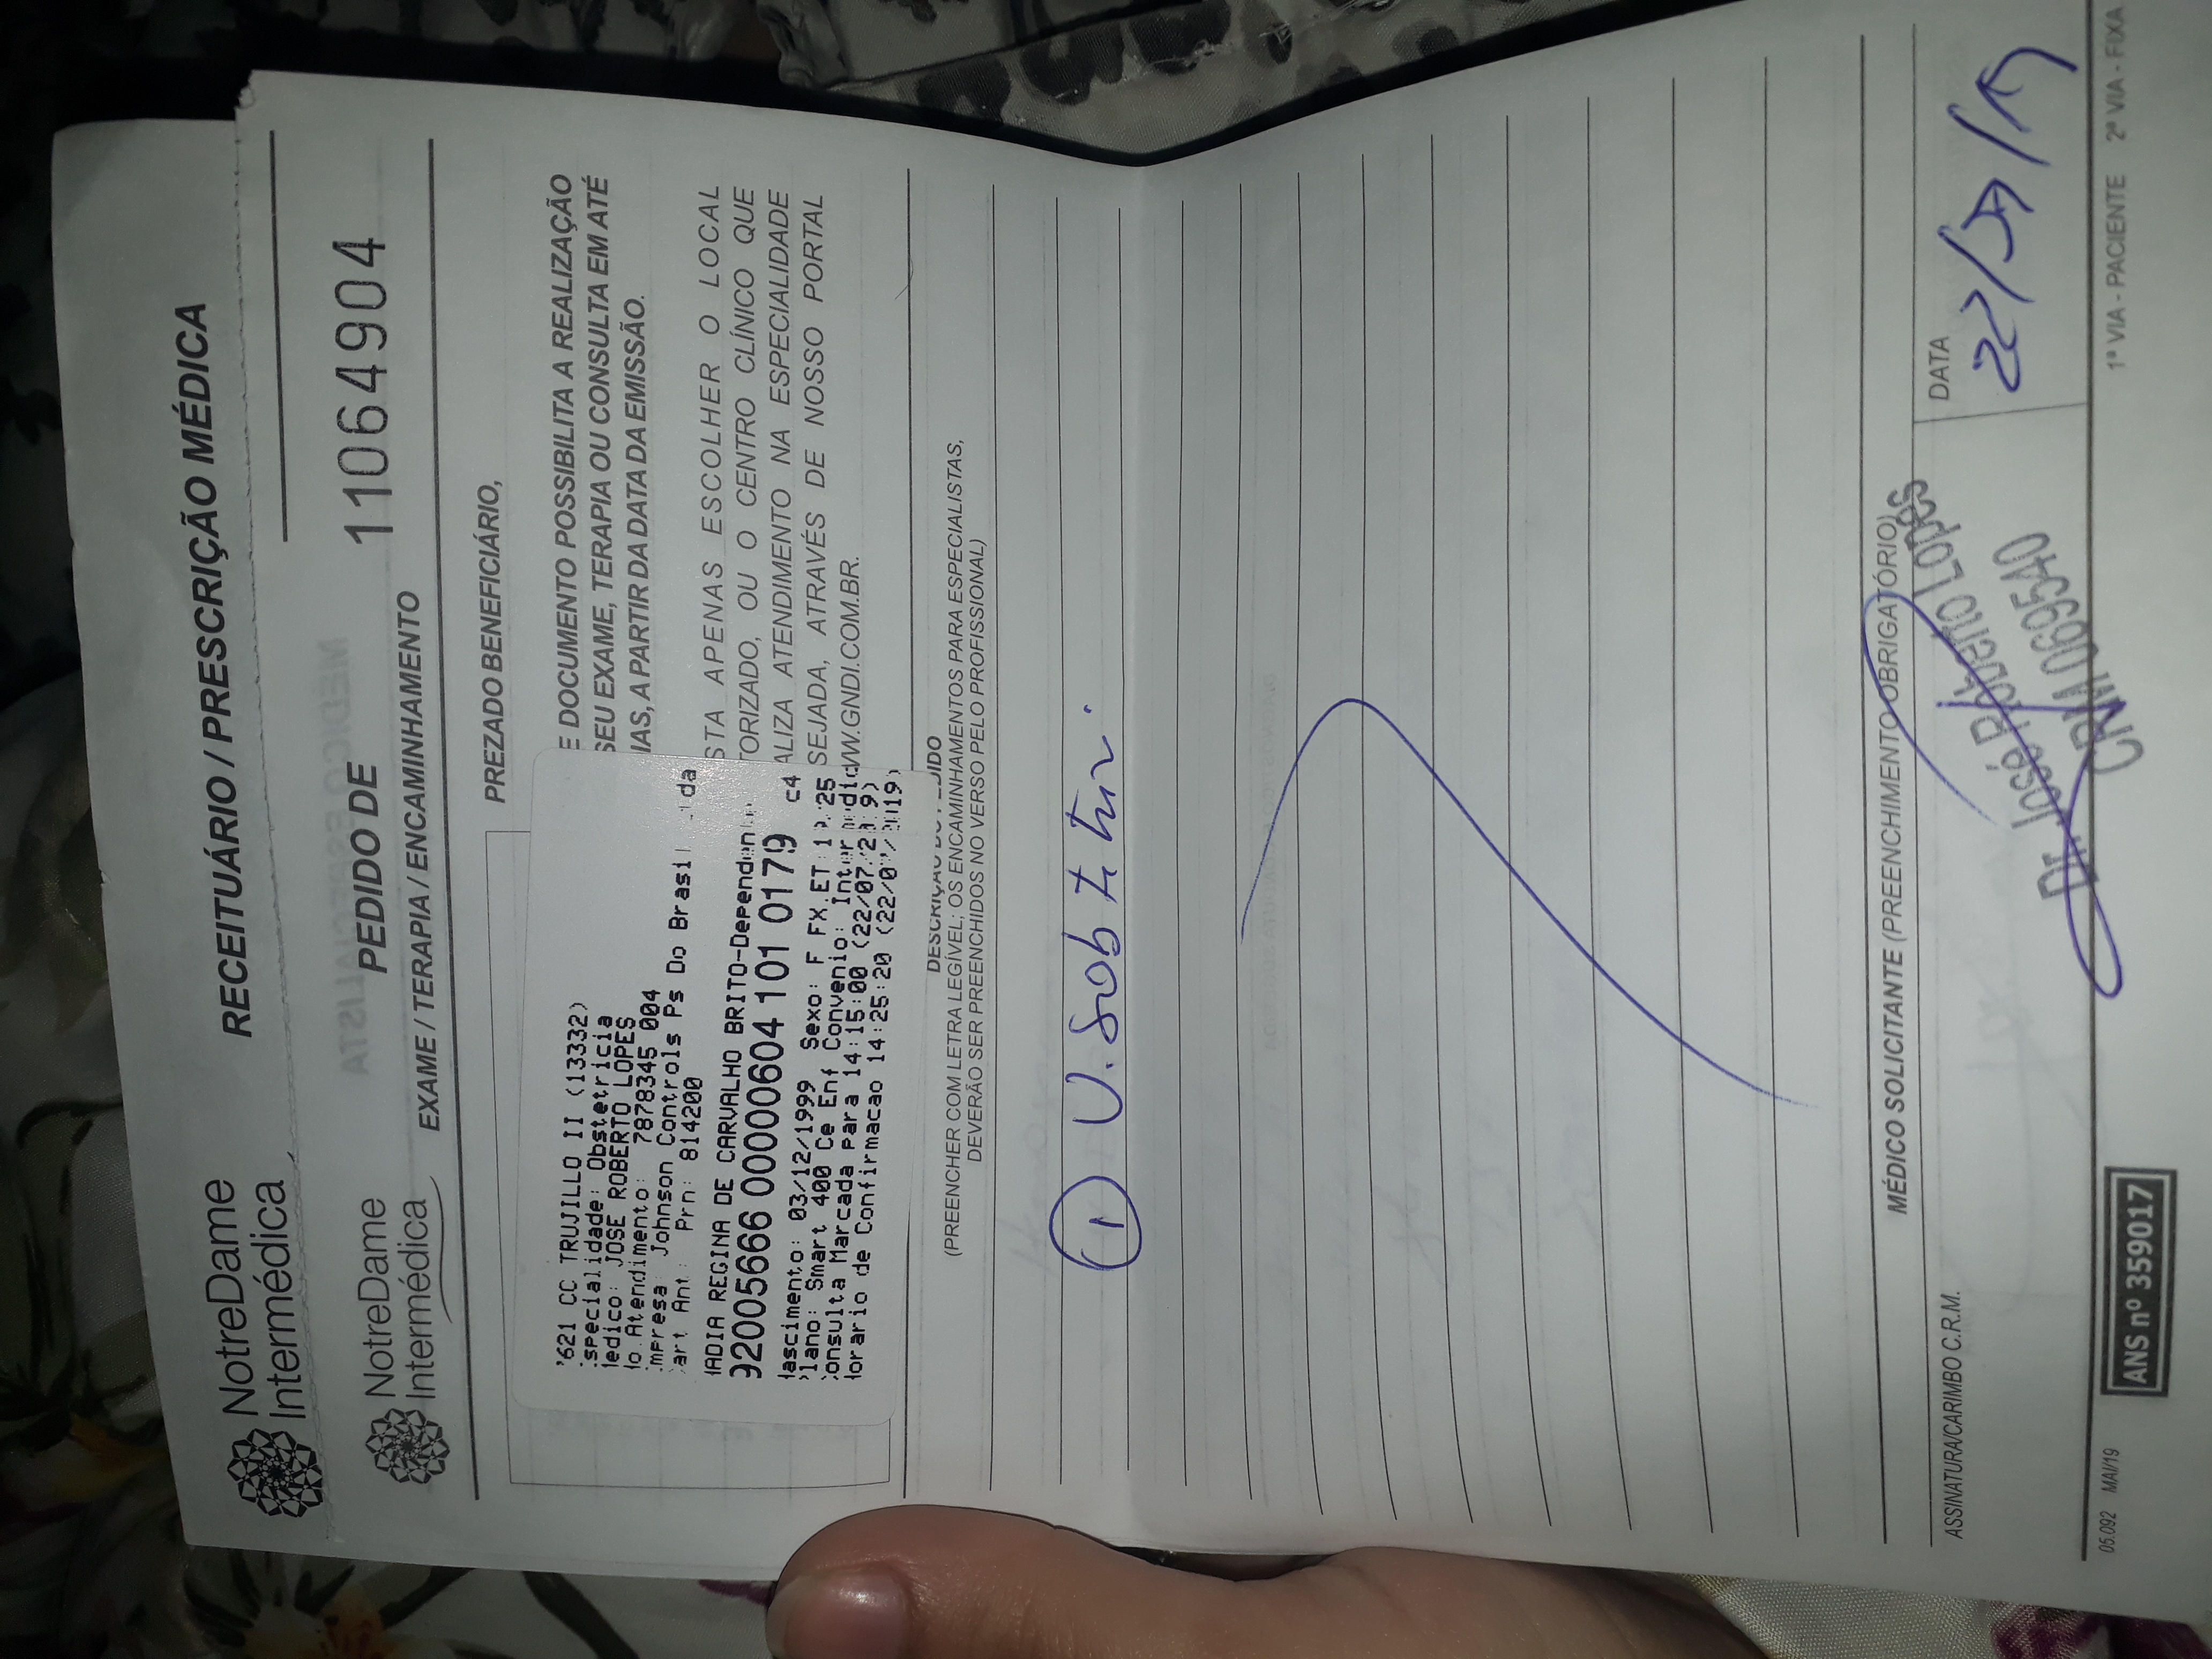 NotreDame
Intermédica
RECEITUÁRIO / PRESCRIÇÃO MÉDICA
NotreDame
Intermédica
PEDIDO DE
EXAME / TERAPIA / ENCAMINHAMENTO
11064904
MÉDICO ESPECIALISTA
PREZADO BENEFICIÁRIO,
E DOCUMENTO POSSIBILITA A REALIZAÇÃO
SEU EXAME, TERAPIA OU CONSULTA EM ATÉ
IAS, A PARTIR DA DATA DA EMISSÃO.
STA APENAS ESCOLHER O LOCAL
TORIZADO, OU O CENTRO CLÍNICO QUE
ALIZA ATENDIMENTO NA ESPECIALIDADE
SEJADA, ATRAVÉS DE NOSSO PORTAL
WW.GNDI.COM.BR.
621 CC TRUJILLO II (13332)
specialidade: Obstetricia
edico: JOSE ROBERTO LOPES
o.Atendimento: 7878345 004
mpresa: Johnson Controls Ps Do Brasil Ltda
art Ant: Prn: 814200
ADIA REGINA DE CARVALHO BRITO-Dependente
92005666 00000604 101 0179 c4
ascimento: 03/12/1999 Sexo: F FX.ET: 19/25
lano: Smart 400 Ce Enf Convenio: Intermedic
onsulta Marcada para 14:15:00 (22/07/2019)
orario de Confirmacao 14:25:20 (22/07/2019)
DESCRIÇÃO DO PEDIDO
(PREENCHER COM LETRA LEGÍVEL; OS ENCAMINHAMENTOS PARA ESPECIALISTAS,
DEVERÃO SER PREENCHIDOS NO VERSO PELO PROFISSIONAL)
1
MÉDICO SOLICITANTE (PREENCHIMENTO OBRIGATÓRIO)
ASSINATURA/CARIMBO C.R.M.
Dr. José Roberto Lopes
CRM 069540
DATA
22/07/19
05.092 MAI/19
ANS nº 359017
1ª VIA - PACIENTE 2ª VIA - FIXA